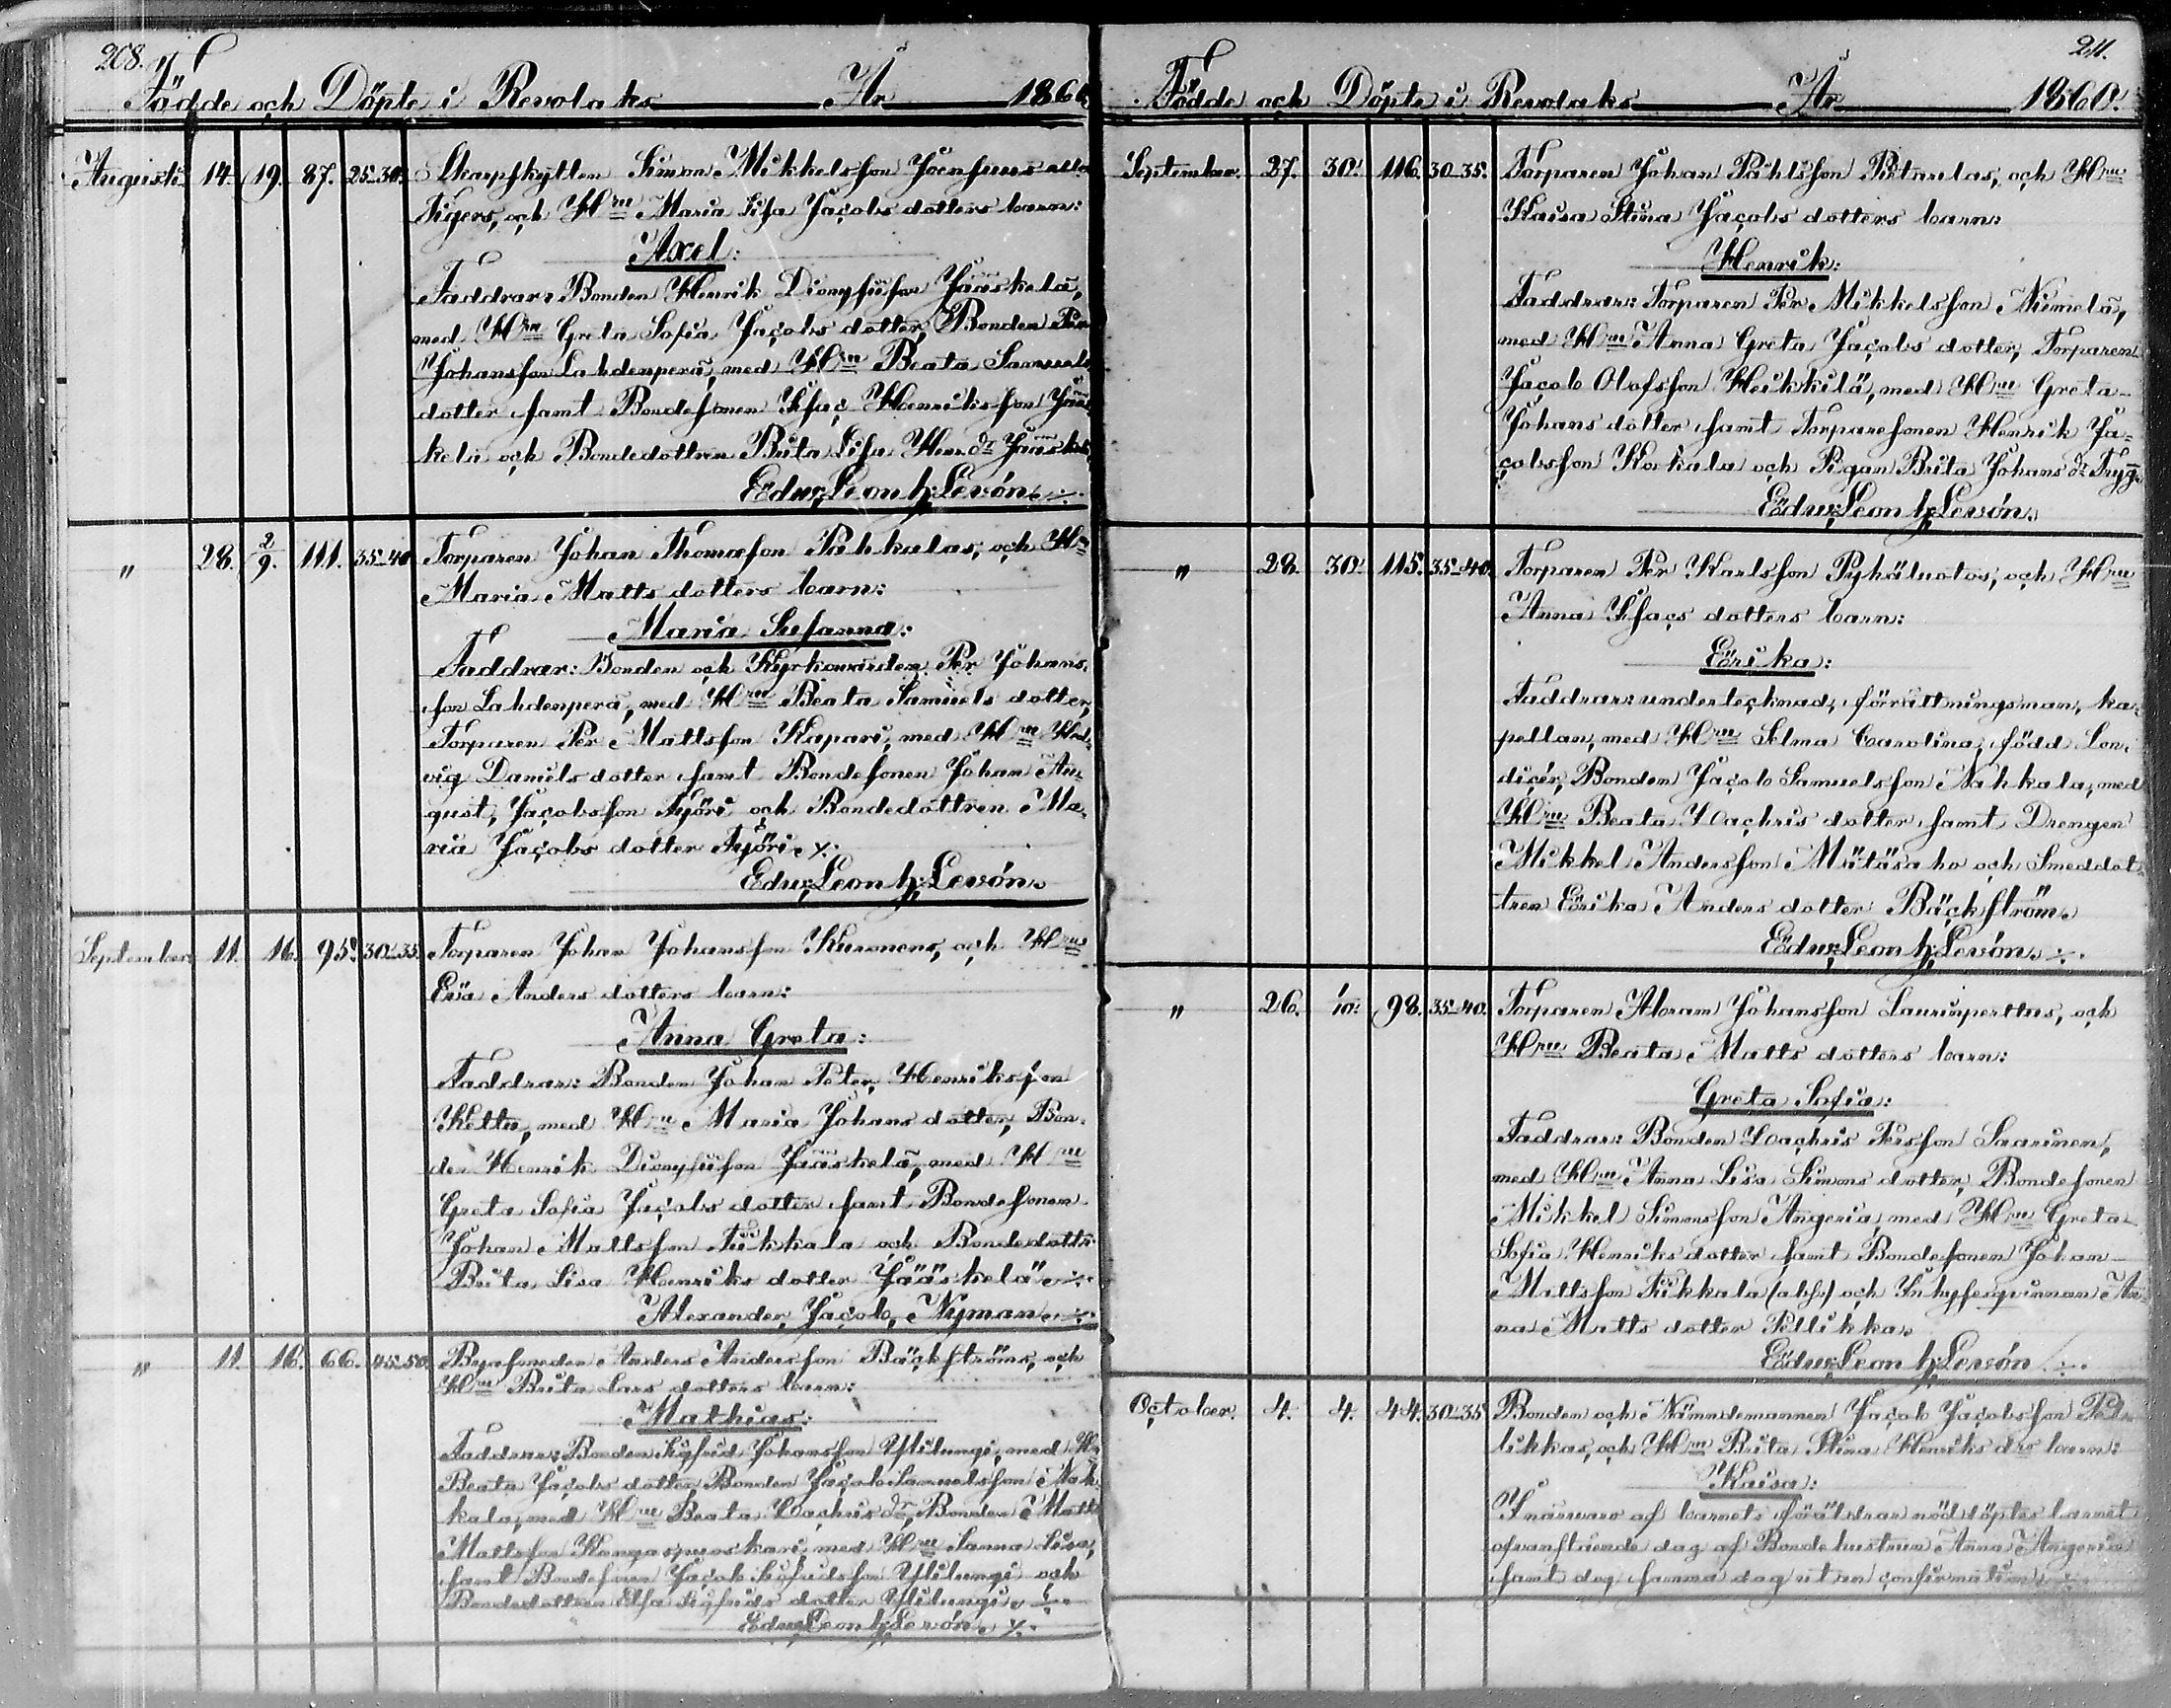 208.
Födde och Döpte i Revolaks År 1860
Augusti. 14. 19. 87. 25-30. Skarpskytten Simon Mikkelsson Joensuus alla
Tigers, och Hru Maria Lisa Jacobs dotters barn:
Axel:
Faddrar: Bonden Henrik Dionysiuson Jääskelä,
med Hru Greta Sofia Jacobs dotter, Bonden Per
Johansson Lahdenperä, med Hru Beata Samuels
dotter samt Bondesonen Isac Henriksson Jääs
kelä och Bondedottren Brita Lisa Hen. dr Jääskelä
Edw: Leonh: Levón.
" 28. 2/9. 111. 35-40 Torparen Johan Thomasson Pahkalas, och Hru
Maria Matts dotters barn:
Maria Susanna:
Faddrar: Bonden och Kyrkovärden Per Johans
son Lahdenperä, med Hru Beata Samuels dotter,
Torparen Per Mattsson Kapari, med Hru Hed
vig Daniels dotter samt Bondesonen Johan Au
gust, Jacobsson Työri och Bondedottren Ma
ria Jacobs dotter Työri.
Edw: Leonh: Levón.
September 11. 16. 95. 30-35. Torparen Johan Johansson Kuronens, och Hru
Eva Anders dotters barn:
Anna Greta:
Faddrar: Bonden Johan Peter Henriksson
Keltta, med Hru Maria Johans dotter, Bon
den Henrik Dionysiuson Jääskelä, med Hru
Greta Sofia Jacobs dotter samt Bondesonen
Johan Mattsson Tuikkala och Bondedottr.
Brita Lisa Henriks dotter Jääskelä.
Alexander Jacob Nyman.
" 11. 16. 66. 45-50. Byasmeden Anders Andersson Bäckströms, och
Hru Brita Lars dotters barn:
Mathias:
Faddrar: Bonden Sigfrid Johansson Ylilungi, med Hru
Beata Jacobs dotter, Bonden Jacob Samuelsson Nah
kala, med Hru Beata Zachris dr, Bonden Matts
Mattsson Kangaspuoskari, med Hru Sanna Lisa,
samt Bondesonen Jacob Sigfridsson Ylilungi och
Bondedottren Elsa Sigfrids dotter Ylilungi.
Edw: Leonh: Levón.
211.
Födde och Döpte i Revolaks År 1860.
September. 27. 30. 116. 30-35. Torparen Johan Påhlsson Pitarilas, och Hru
Kaisa Stina Jacobs dotters barn:
Henrik:
Faddrar: Torparen Per Mikkelsson Niemelä,
med Hru Anna Greta Jacobs dotter, Torparen
Jacob Olofsson Heikkilä, med Hru Greta
Johans dotter samt Torparesonen Henrik Ja
cobsson Kokala och Pigan Brita Johans dr Tryg.
Edw: Leonh: Levón.
" 28. 30. 115. 35-40. Torparen Per Karlsson Pyhäluotos, och Hru
Anna Isacs dotters barn:
Erika:
Faddrar: undertecknad, förrättningsman, ka
pellan, med Hru Selma Carolina, född Lon
dicér, Bonden Jacob Samuelsson Nahkala, med
Hru Beata Zachris dotter samt Drengen
Mikkel Andersson Mätäsaho och Smeddot
tren Erika Anders dotter Bäckström.
Edw: Leonh: Levón.
" 26. 1/10. 98. 35-40. Torparen Abram Johansson Lauripperttus, och
Hru Beata Matts dotters barn:
Greta Sofia:
Faddrar: Bonden Zachris Persson Saarinen,
med Hru Anna Lisa Simons dotter, Bondesonen
Mikkel Simonsson Angeria, med Hru Greta
Sofia Henriks dotter samt Bondesonen Johan
Mattsson Tuikkala (abs) och Inhysesqvinnan An
na Matts dotter Pellikka.
Edw: Leonh: Levón
October. 4. 4. 44. 30-35 Bonden och Nämndemannen Jacob Jacobsson Pel
likkas, och Hru Brita Stina Henriks drs barn:
Kaisa:
I närvaro af barnets föräldrar nöddöptes barnet
ofvanstående dag af Bondehustrun Anna Angeria
samt dog samma dag utan confirmation.